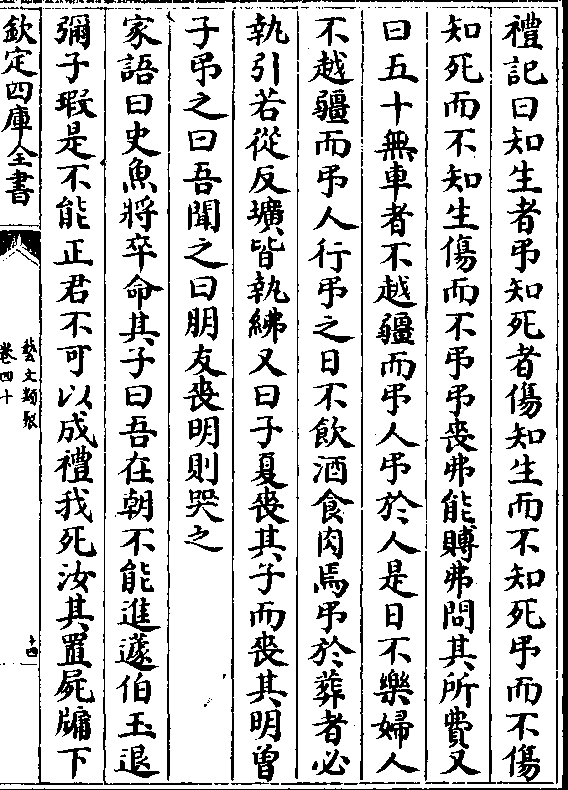 禮記曰知生者弔知死者傷知生而不知死弔而不傷
知死而不知生傷而不弔弔喪弗能賻弗問其所費又
曰五十無車者不越疆而弔人弔於人是日不樂婦人
不越疆而弔人行弔之日不飲酒食肉焉弔於葬者必
執引若從反壙皆執紼又曰子夏喪其子而喪其明曾
子弔之曰吾聞之曰朋友喪明則哭之
家語曰史魚將卒命其子曰吾在朝不能進蘧伯玉退
彌子瑕是不能正君不可以成禮我死汝其置屍牖下
欽定四庫全書
藝文類聚
卷四十
十四